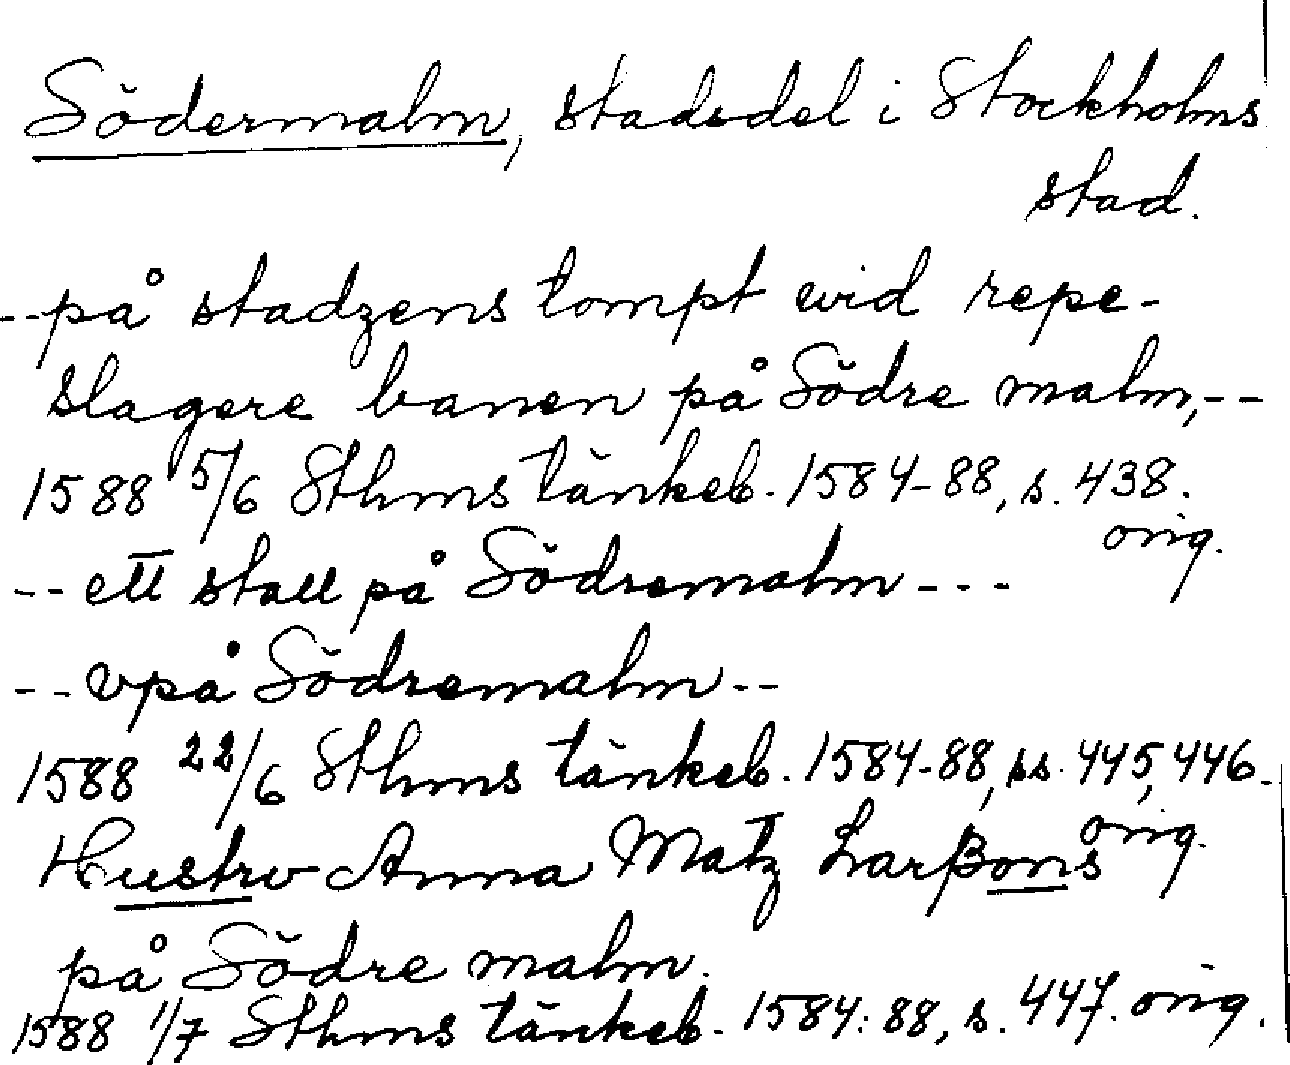 Södermalm, stadsdel i Stockholms
stad.
--på stadzens tompt wid repe-
slagere banen på Södre malm,--
1588 5/6 Sthms tänkeb. 1584-88, s. 438.
orig.
--ett stall på Södremalm---
--vpå Södremalm--
1588 22/6 Sthms tänkeb. 1584-88, ss. 445, 446.
orig.
Hustrv Anna Matz Larßons
på Södre malm.
1588 1/7 Sthms tänkeb. 1584-88, s. 447. orig.